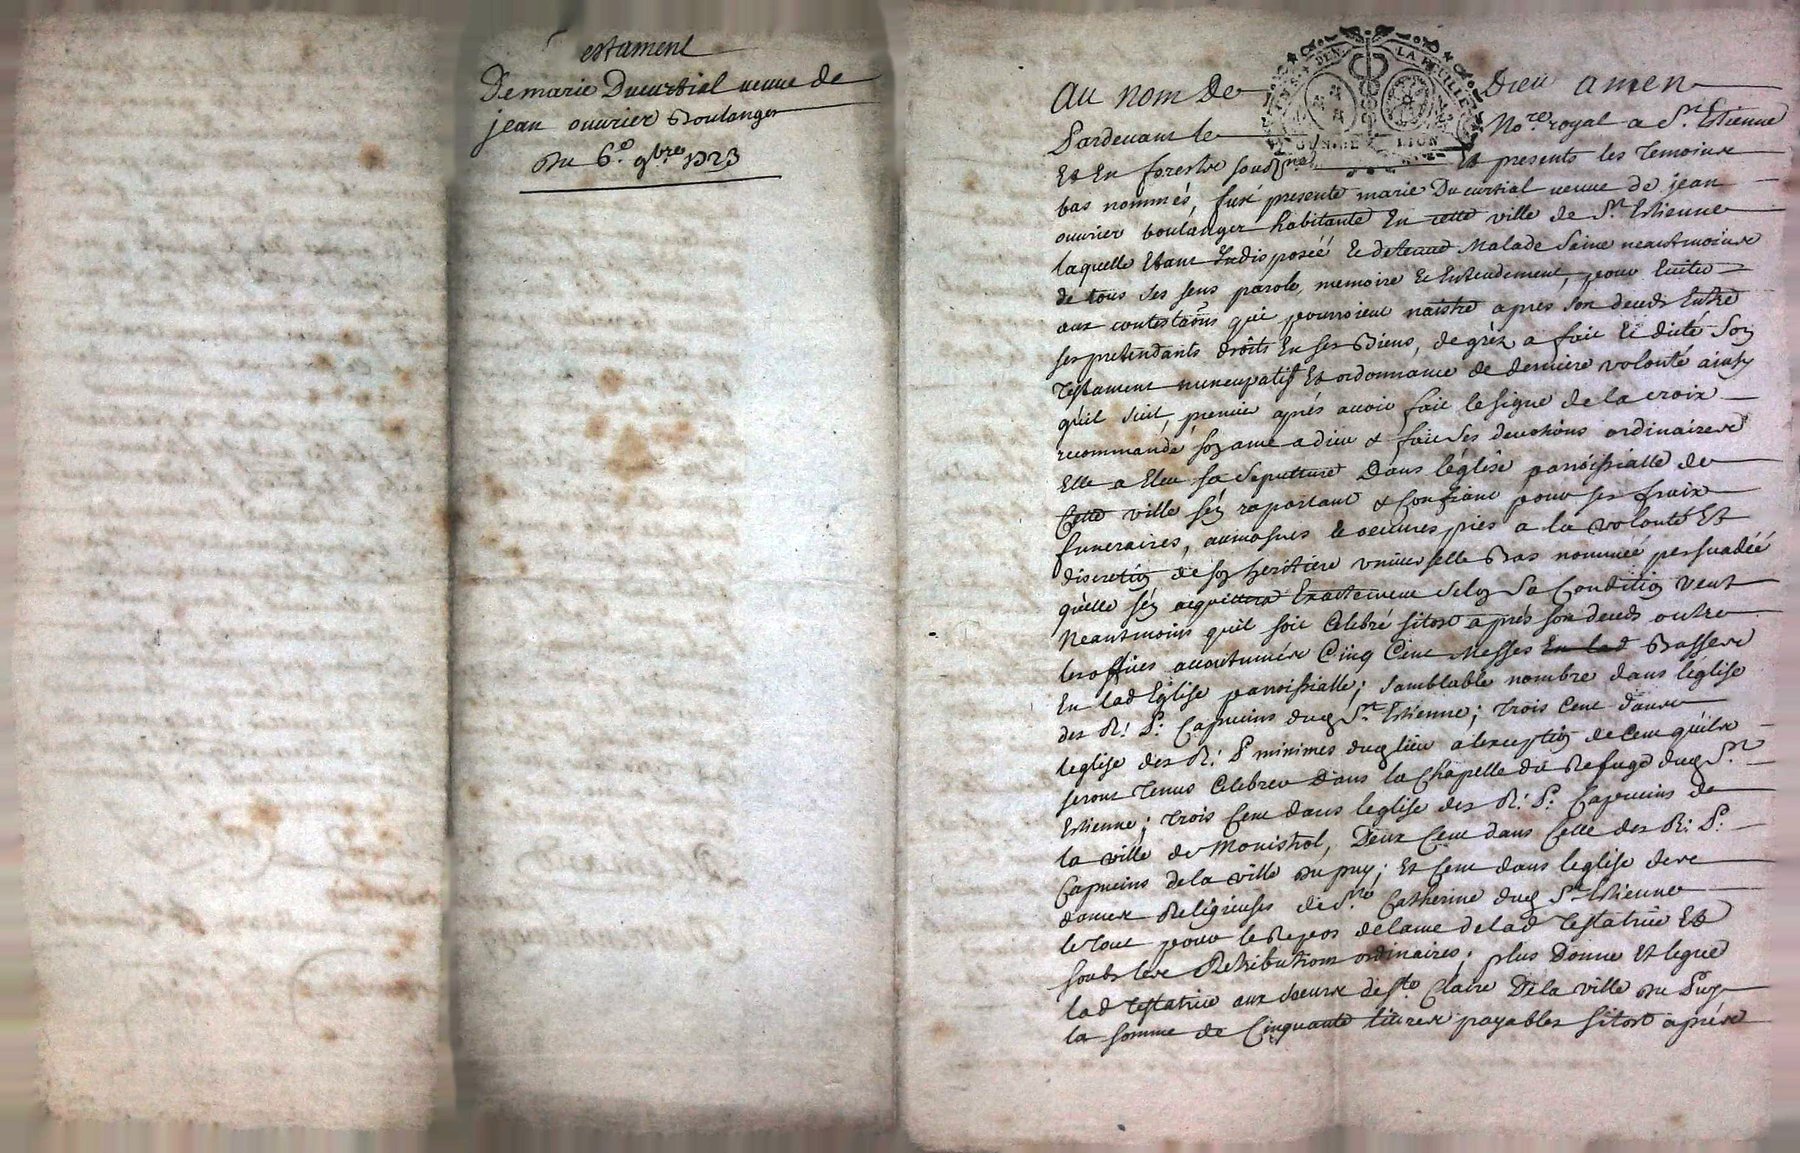 Testament
De marie Ducurtial veuve de
jean ouvrier Boulanger
Du 6.e 9bre 1723
Au nom De Dieu amen
Pardevant le No.re royal a St. Etienne
Et En forestz soubz.né Et presents les temoins
bas nommés, fut presente marie Ducurtial veuve de jean
ouvrier boulanger habitante En cette ville de St. Estienne
laquelle Etant Indisposéé & detenue Malade Saine neantmoins
de tous ses sens parole, memoire & Entendement, pour Eviter
aux contestaõns qui pourroient naistre apres son deceds Entre
ses pretendants droits En ses Biens, de gréz a fait & dicté Son
Testament nuncupatif Et ordonnance de derniere volonté ainsy
qu'il suit, premier aprés avoir fait le signe de la croix
recommandé son ame a dieu & fait ses devotions ordinaires
Elle a Eleu sa Sepulture Dans l'église paroissialle de
Cette ville s'én raportant & Confiant pour ses fraix
funeraires, aumosnes & oeuvres pies a la volonté Et
discretion de son heritiere universelle Bas nommeé persuadéé
qu'elle s'én acquittera Exactement Selon Sa Condition veut
Neantmoins quil soit Celebré sitost aprés son deceds outre
les offices accoutumées Cinq Cent Messes En lad Basses
En lad Eglise paroissialle; Samblable nombre dans l'église
des R: P: Capucins dud St. Estienne; trois Cent dans
leglise des R: P minimes dud lieu a lexception de Cent qu'ils
seront tenus Celebrer Dans la Chapelle du Refuge dud St.
Estienne; trois Cent dans leglise des R: P: Capucins de
la ville de Monistrol, Deux Cent dans Celle des R: P:
Capucins de la ville du puy; Et Cent dans leglise des
dames Religieuses de Ste Catherine dud St Estienne
le tout pour le Repos de lame de lad Testatrice Et
soubs les Retributions ordinaires; plus Donne Et legue
lad testatrice aux soeurs de Ste Claire De la ville Du Puy
la somme de Cinquante livres payables sitost aprés